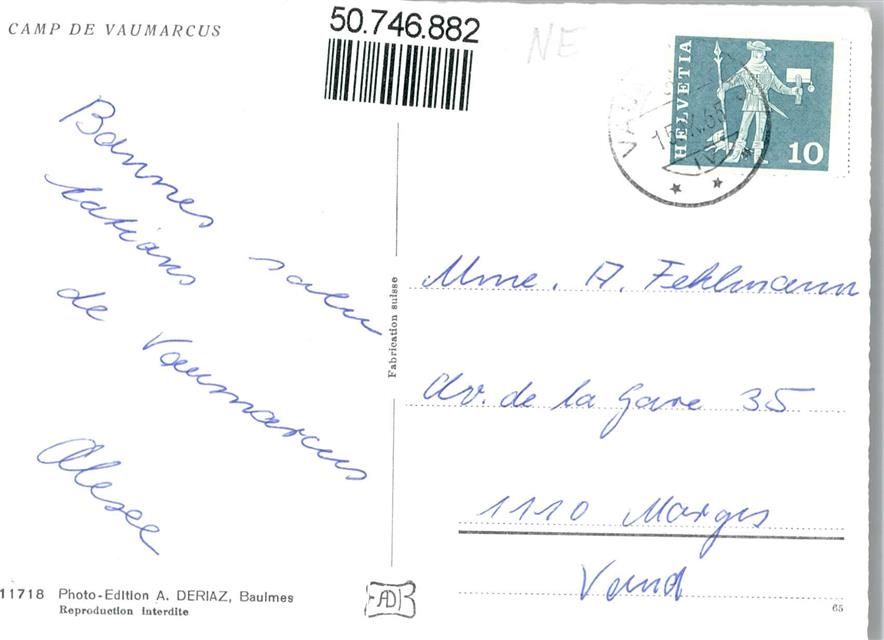 CAMP DE VAUMARCUS
50.746.882
NE
HELVETIA
10
15.X.65
Bonnes salu
tations
de Vaumarcus
Fabrication suisse
Mme. A. Fehlmann
Av. de la Gare 35
1110 Morges
Vaud
11718 Photo-Edition A. DERIAZ, Baulmes
Reproduction interdite
AD
65